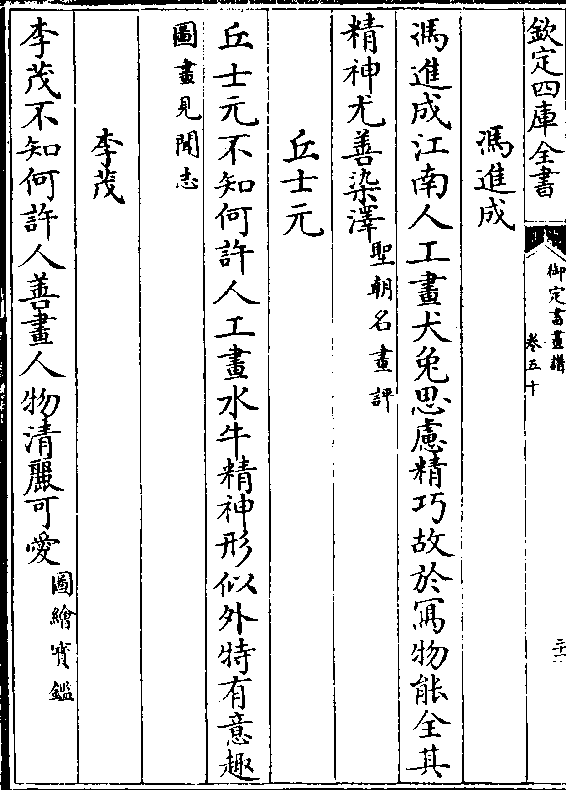 欽定四庫全書
御定書畫譜
卷五十
馮進成
馮進成江南人工畫犬兔思慮精巧故於冩物能全其
精神尤善染澤聖朝名畫評
丘士元
丘士元不知何許人工畫水牛精神形似外特有意趣
圖畫見聞志
李茂
李茂不知何許人善畫人物清麗可愛圖繪寳鑑